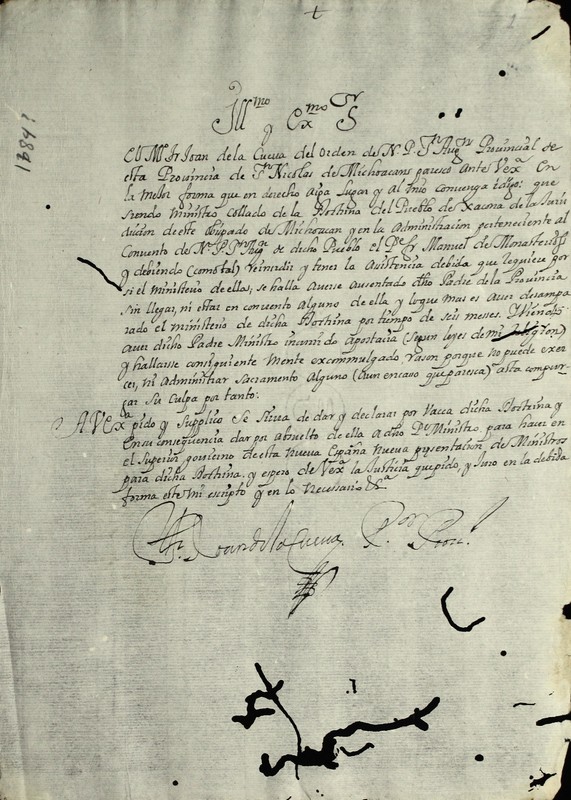 1684?
Illmo y Exmo Sr
El Mo fr Joan de la Cueva del Orden de N. P. Sn Augn Provincial de
esta Provincia de Sn Nicolas de Michoacan: paresco Ante Vexa En
la mejor forma que en derecho aya Lugar y al mio convenga digo: que
siendo Ministro collado de la Doctrina del Pueblo de Xacona de la Juris
dicion de este obispado de Michoacan y en la Administracion perteneciente al
Convento de N. P. Sn Augn de dicho Pueblo el Pe fr Manuel de
y debiendo (como tal) reimridir y tener la Asistencia debida que requiere por
si el ministerio de ella, se halla averse ausentado dho Padre de la Provincia
sin llegar, ni estar en convento Alguno de ella y loque mas es Aver desampa
rado el ministerio de dicha Doctrina por tiempo de seis meses. Y
Aver dicho Padre Ministro incurrido Apostacia (segun leyes de mi Religion)
y hallarse consiguiente mente excommulgado rason porque no puede exer
cer, ni Administrar Sacramento Alguno (aun encaso que paresca) asta compur
gar su culpa por tanto:
A VExa pido y Supplico se sirva de dar y declarar por vacca dicha Doctrina y
En su consequencia dar por absuelto de ella a dho Pe Ministro. para hacer en
el Superior govierno de esta Nueva España Nueva presentacion de Ministros
para dicha Doctrina. y espero de Vexa la Justicia que pido, y Juro en la debida
forma este mi escripto y en lo Necesario &a
Fr. Joan de la Cueva. Por Proal